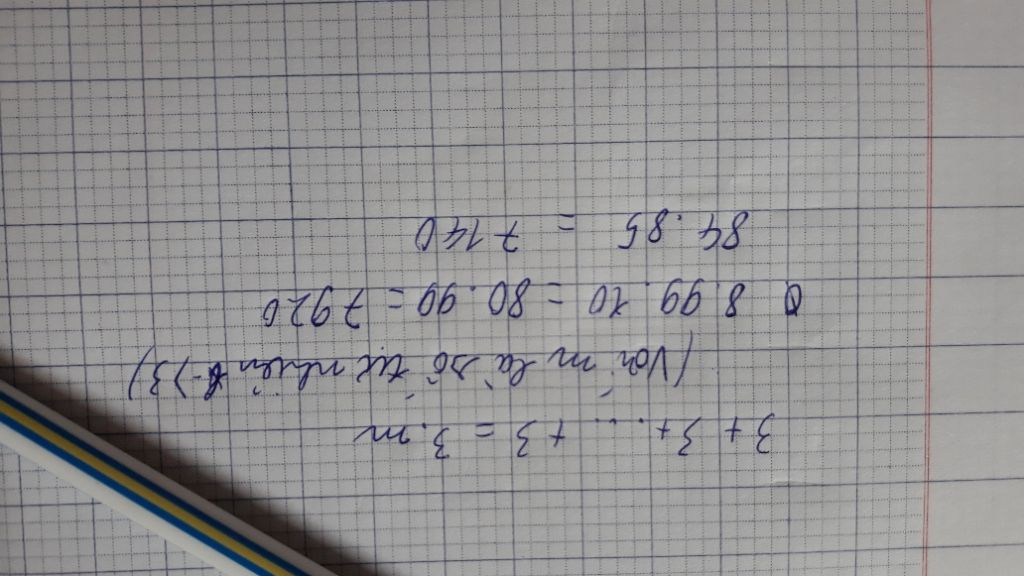 3 + 3 + .... + 3 = 3.m
(Với m là số tự nhiên > 3)
8.99.10 = 80.99 = 7920
84.85 = 7140